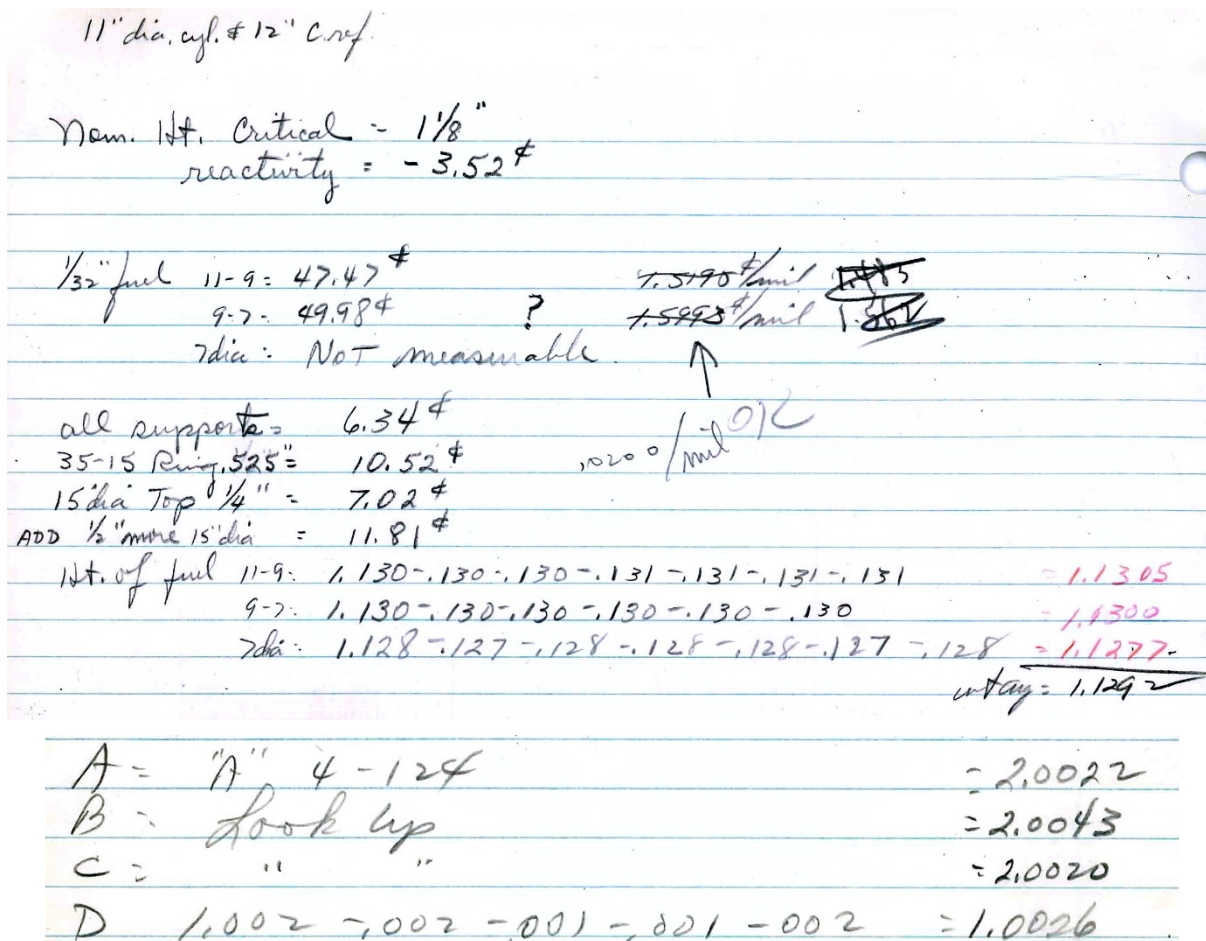 11" dia. cyl. & 12" C. ref.
Nom. Ht. Critical = 1 1/8"
reactivity = -3.52¢
1/32" fuel 11-9 = 47.47¢ 1.5190¢/mil
9-7 = 49.98¢ ? 1.5993¢/mil
7dia : Not measurable.
all supports = 6.34¢ OK
35-15 Ring .525" = 10.52¢ .0200/mil
15"dia Top 1/4" = 7.02¢
ADD 1/2" more 15"dia = 11.81¢
Ht. of fuel 11-9: 1.130-.130-.130-.131-.131-.131-.131 = 1.1305
9-7: 1.130-.130-.130-.130-.130-.130 = 1.1300
7dia: 1.128-.127-.128-.128-.128-.127-.128 = 1.1277
wt avg = 1.1292
A = "A" 4-124 = 2.0022
B = Look up = 2.0043
C = " " = 2.0020
D 1.002 -.002 -.001 -.001 -.002 = 1.0026